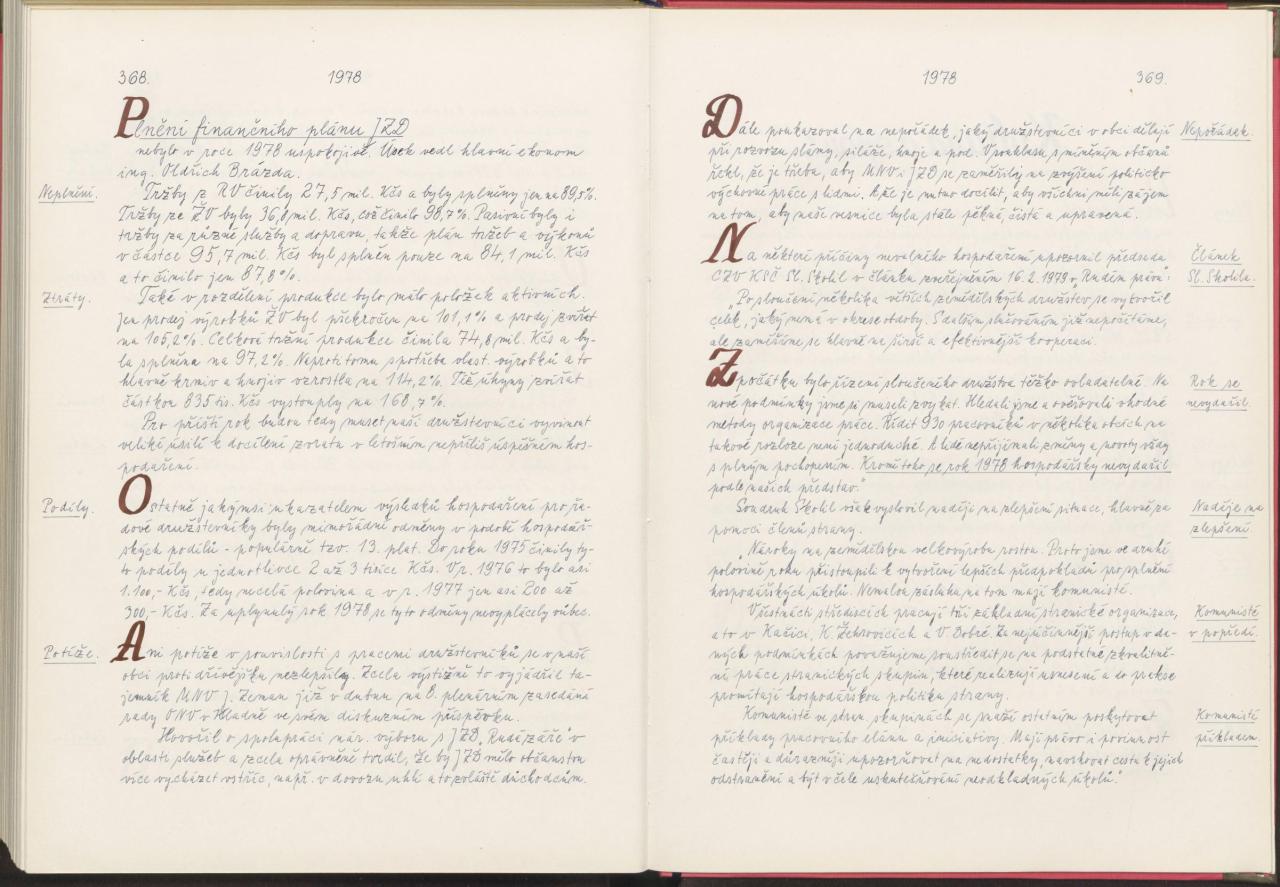 368.
1978
Plnění finančního plánu JZD
nebylo v roce 1978 uspokojivé. Úsek vedl hlavní ekonom
ing. Oldřich Brázda.
Neplnění.
Tržby z RV činily 27,5 mil. Kčs a byly splněny jen na 89,5%.
Tržby ze ŽV byly 36,8 mil. Kčs, což činilo 98,7%. Pasivní byly i
tržby za různé služby a dopravu, takže plán tržeb a výkonů
v částce 95,7 mil. Kčs byl splněn pouze na 84,1 mil. Kčs
a to činilo jen 87,8%.
Ztráty.
Také v rozdělení produkce bylo málo položek aktivních.
Jen prodej výrobků ŽV byl překročen na 101,1% a prodej zvířat
na 105,2%. Celková tržní produkce činila 74,8 mil. Kčs a by-
la splněna na 97,2%. Naproti tomu spotřeba vlast. výrobků a to
hlavně krmiv a hnojiv vzrostla na 114,2%. Též úhyny zvířat
částkou 835 tis. Kčs vystouply na 168,7%.
Pro příští rok budou tedy muset naši družstevníci vyvinout
veliké úsilí k docílení zvratu v letošním nepříliš úspěšném hos-
podaření.
Podíly.
Ostatně jakýmsi ukazatelem výsledků hospodaření pro řa-
dové družstevníky byly mimořádné odměny v podobě hospodář-
ských podílů - populárně tzv. 13. plat. Do roku 1975 činily ty-
to podíly u jednotlivce 2 až 3 tisíce Kčs. V r. 1976 to bylo asi
1.100,- Kčs, tedy necelá polovina a v r. 1977 jen asi 200 až
300,- Kčs. Za uplynulý rok 1978 se tyto odměny nevyplácely vůbec.
Potíže.
Ani potíže v souvislosti s pracemi družstevníků se v naší
obci proti dřívějšku nezlepšily. Zcela výstižně to vyjádřil ta-
jemník MNV J. Zeman již v dubnu na 8. plenárním zasedání
rady ONV v Kladně ve svém diskuzním příspěvku.
Hovořil o spolupráci nár. výboru s JZD „Rudá záře" v
oblasti služeb a zcela oprávněně tvrdil, že by JZD mělo občanstvu
více vycházet vstříc, např. v dovozu uhlí a to zvláště důchodcům.
1978
369.
Dále poukazoval na nepořádek, jaký družstevníci v obci dělají
Nepořádek.
při rozvozu slámy, siláže, hnoje a pod. V souhlasu s míněním občanů
řekl, že je třeba, aby MNV i JZD se zaměřily na zvýšení politicko
výchovné práce s lidmi. A že je nutno docílit, aby všichni měli zájem
na tom, aby naše vesnice byla stále pěkná, čistá a upravená.
Na některé příčiny nevalného hospodaření upozornil předseda
Článek
CZV KSČ Sl. Skohil v článku zveřejněném 16. 2. 1979 v „Rudém právu".
Sl. Skohila.
„Po sloučení několika větších zemědělských družstev se vytvořil
celek, jaký nemá v okrese obdoby. S dalším slučováním již nepočítáme,
ale zaměříme se hlavně na širší a efektivnější kooperaci.
Zpočátku bylo řízení sloučeného družstva těžko ovladatelné. Na
Rok se
nové podmínky jsme si museli zvykat. Hledali jsme a ověřovali vhodné
nevydařil.
metody organizace práce. Řídit 930 pracovníků v několika obcích na
takové rozloze není jednoduché. A lidé nepřijímali změny a novoty vždy
s plným pochopením. Kromě toho se rok 1978 hospodářsky nevydařil
podle našich představ."
Soudruh Skohil však vyslovil naději na zlepšení situace, hlavně za
Naděje na
pomoci členů strany.
zlepšení.
„Nároky na zemědělskou velkovýrobu rostou. Proto jsme ve druhé
polovině roku přistoupili k vytvoření lepších předpokladů pro splnění
hospodářských úkolů. Nemalou zásluhu na tom mají komunisté.
V šestnácti střediscích pracují tři základní stranické organizace,
Komunisté
a to v Kačici, K. Žehrovicích a V. Dobré. Za nejúčinnější postup v da-
v popředí.
ných podmínkách považujeme soustředit se na podstatné zkvalitně-
ní práce stranických skupin, které realizují usnesení a do prakse
promítají hospodářskou politiku strany.
Komunisté ve stran. skupinách se snaží ostatním poskytovat
Komunisté
příklady pracovního elánu a iniciativy. Mají právo i povinnost
příkladem.
častěji a důrazněji upozorňovat na nedostatky, navrhovat cestu k jejich
odstranění a být v čele uskutečňování neodkladných úkolů."